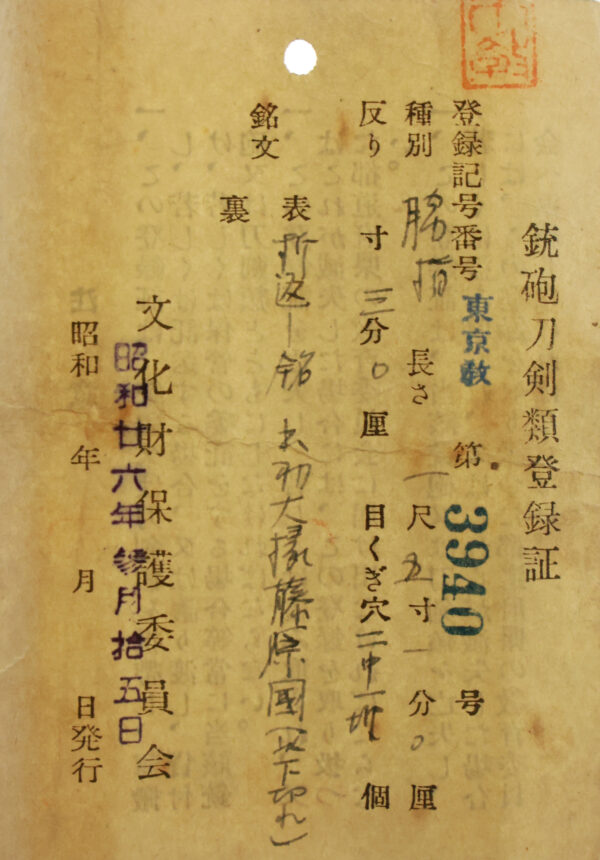 銃砲刀剣類登録証
登録記号番号 東京教 第 3940 号
種別 脇指 長さ 一尺五寸一分0厘
反り 寸三分0厘 目くぎ穴 二中一埋 個
銘文 表 折返し銘 出羽大掾藤原國(以下切れ)
裏
文化財保護委員会
昭和 年 月 日発行
昭和廿六年参月拾五日